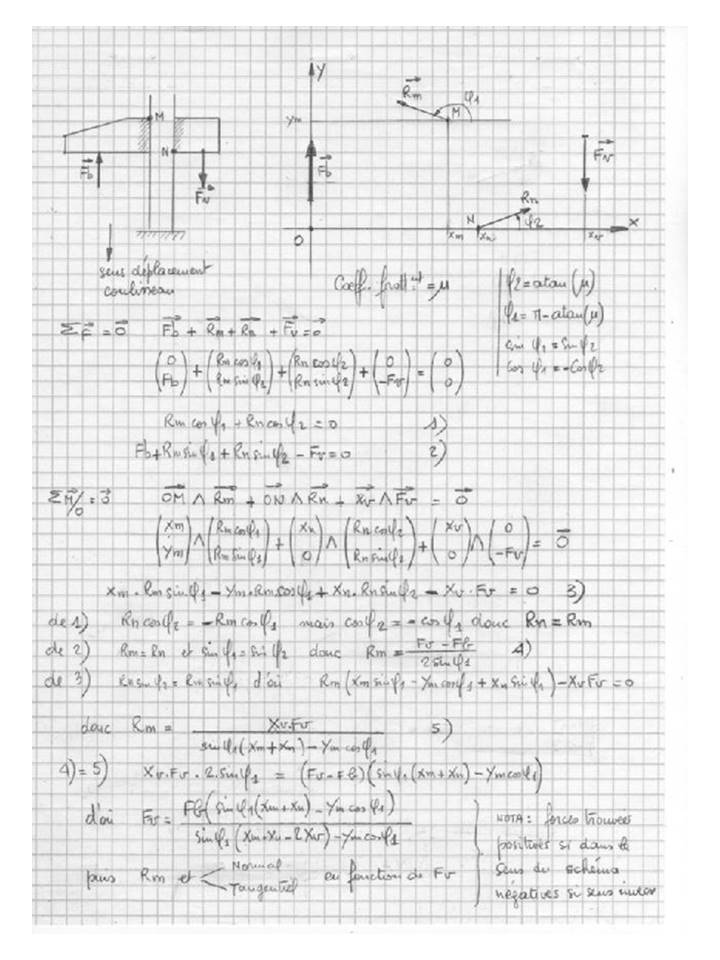 M
N
Fb
Fv
sens déplacement
coulisseau
y
Rm
φ1
ym
M
Fb
Fv
N
Rn
φ2
O
xm
xn
xv
x
Coeff. frott.nt = μ
φ2 = atan(μ)
φ1 = π - atan(μ)
sin φ1 = sin φ2
cos φ1 = -cos φ2
ΣF = 0 Fb + Rm + Rn + Fv = 0
(0 Fb) + (Rm cos φ1 Rm sin φ2) + (Rn cos φ2 Rn sin φ2) + (0 -Fv) = (0 0)
Rm cos φ1 + Rn cos φ2 = 0 1)
Fb + Rm sin φ1 + Rn sin φ2 - Fv = 0 2)
ΣM/O = 0 OM ∧ Rm + ON ∧ Rn + xv ∧ Fv = 0
(xm ym) ∧ (Rm cos φ1 Rm sin φ1) + (xn 0) ∧ (Rn cos φ2 Rn sin φ2) + (xv 0) ∧ (0 -Fv) = 0
xm . Rm sin φ1 - ym . Rm cos φ1 + xn . Rn sin φ2 - xv . Fv = 0 3)
de 1) Rn cos φ2 = -Rm cos φ1 mais cos φ2 = -cos φ1 donc Rn = Rm
de 2) Rm = Rn et sin φ1 = sin φ2 donc Rm = (Fv - Fb) / (2 sin φ1) 4)
de 3) Rn sin φ2 = Rm sin φ1 d'où Rm (xm sin φ1 - ym cos φ1 + xn sin φ1) - xv Fv = 0
donc Rm = (xv . Fv) / (sin φ1 (xm + xn) - ym cos φ1) 5)
4) = 5) xv . Fv . 2 . sin φ1 = (Fv - Fb)(sin φ1 (xm + xn) - ym cos φ1)
d'où Fv = Fb(sin φ1 (xm + xn) - ym cos φ1) / (sin φ1 (xm + xn - 2xv) - ym cos φ1)
puis Rm et Normal Tangentiel en fonction de Fv
NOTA : forces trouvées
positives si dans le
sens du schéma
négatives si sens inverse